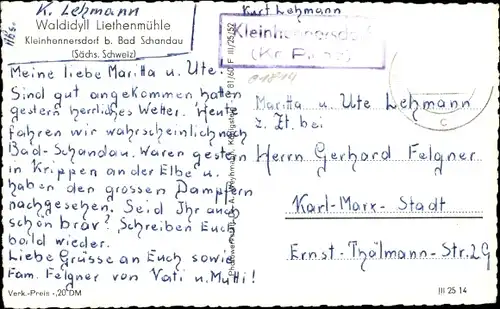 K. Lehmann
Waldidyll Liethenmühle
Kleinhennersdorf b. Bad Schandau
(Sächs. Schweiz)
Meine liebe Maritta u. Ute.
Sind gut angekommen hatten
gestern herrliches Wetter. Heute
fahren wir wahrscheinlich nach
Bad-Schandau. Waren gestern
in Krippen an der Elbe u.
haben den grossen Dampfern
nachgesehen. Seid Ihr auch
schön brav? Schreiben Euch
bald wieder.
Liebe Grüsse an Euch sowie
Fam. Felgner von Vati u. Mutti!
Verk.-Preis -,20 DM
III/25/52
Kurt Lehmann
Kleinhennersdorf
(Kr. Pirna)
01814
Maritta u. Ute Lehmann
z. Zt. bei
Herrn Gerhard Felgner
Karl-Marx-Stadt
Ernst-Thälmann-Str. 26
III 25 14